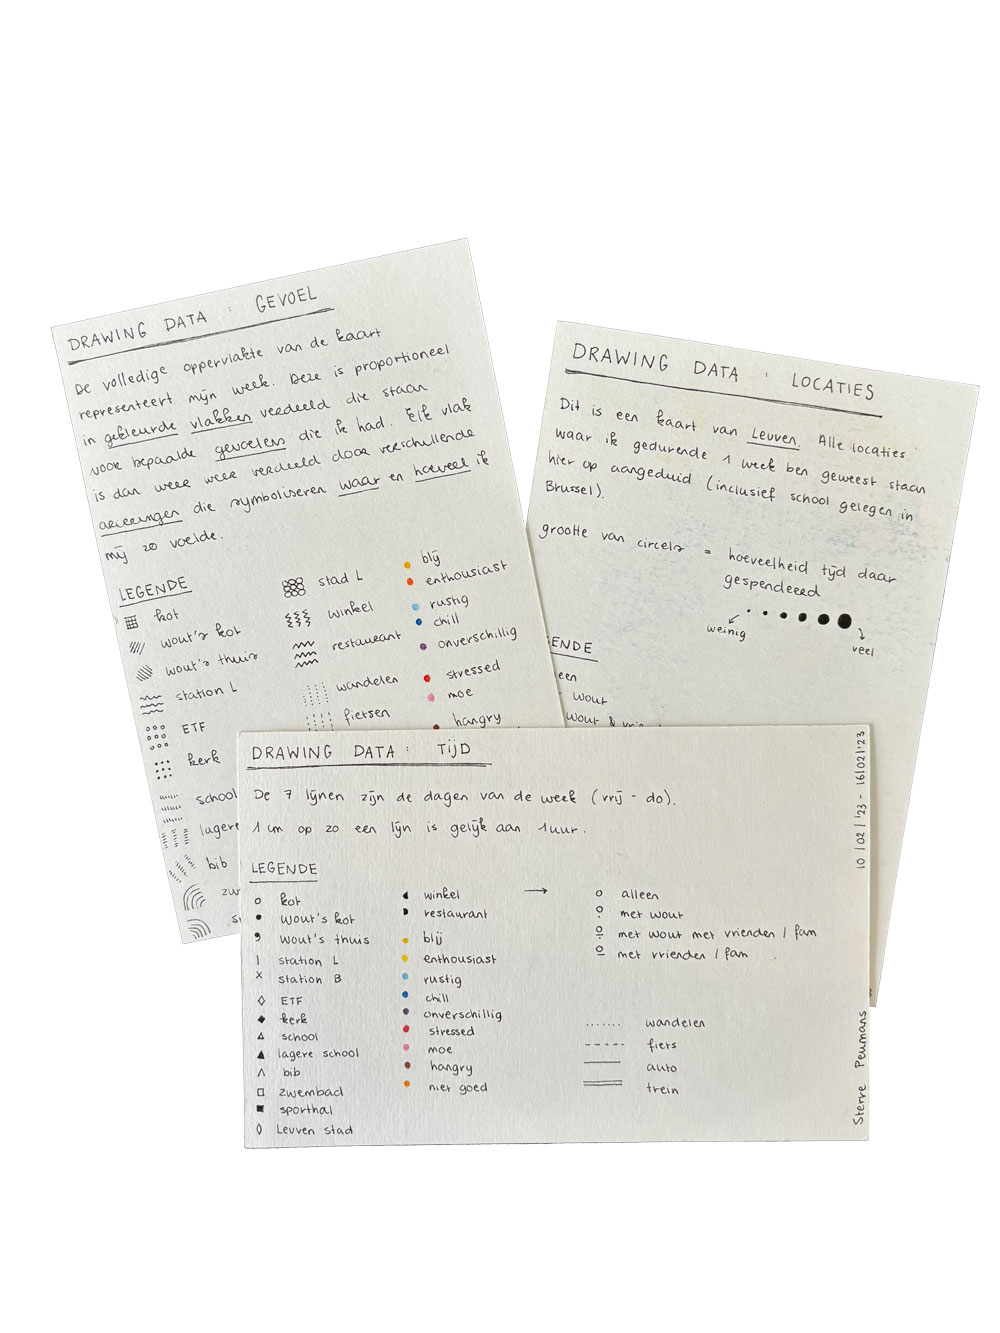 DRAWING DATA : GEVOEL
De volledige oppervlakte van de kaart
representeert mijn week. Deze is proportioneel
in gekleurde vlakken verdeeld die staan
voor bepaalde gevoelens die ik had. Elk vlak
is dan weer weer verdeeld door verschillende
arceringen die symboliseren waar en hoeveel ik
mij zo voelde.
LEGENDE
kot
wout's kot
wout's thuis
station L
ETF
kerk
school
lagere
bib
zw
s
stad L
winkel
restaurant
wandelen
fietsen
blij
enthousiast
rustig
chill
onverschillig
stressed
moe
hangry
DRAWING DATA : LOCATIES
Dit is een kaart van Leuven. Alle locaties
waar ik gedurende 1 week ben geweest staan
hier op aangeduid (inclusief school gelegen in
Brussel).
grootte van circels = hoeveelheid tijd daar
gespendeerd
weinig
veel
ENDE
een
wout
wout &
DRAWING DATA : TIJD
De 7 lijnen zijn de dagen van de week (vrij - do).
1 cm op zo een lijn is gelijk aan 1 uur.
LEGENDE
kot
wout's kot
wout's thuis
station L
station B
ETF
kerk
school
lagere school
bib
zwembad
sporthal
Leuven stad
winkel
restaurant
blij
enthousiast
rustig
chill
onverschillig
stressed
moe
hangry
niet goed
→
alleen
met wout
met wout met vrienden / fam
met vrienden / fam
wandelen
fiets
auto
trein
10 / 02 / '23 - 16/02/'23
Sterre Peumans